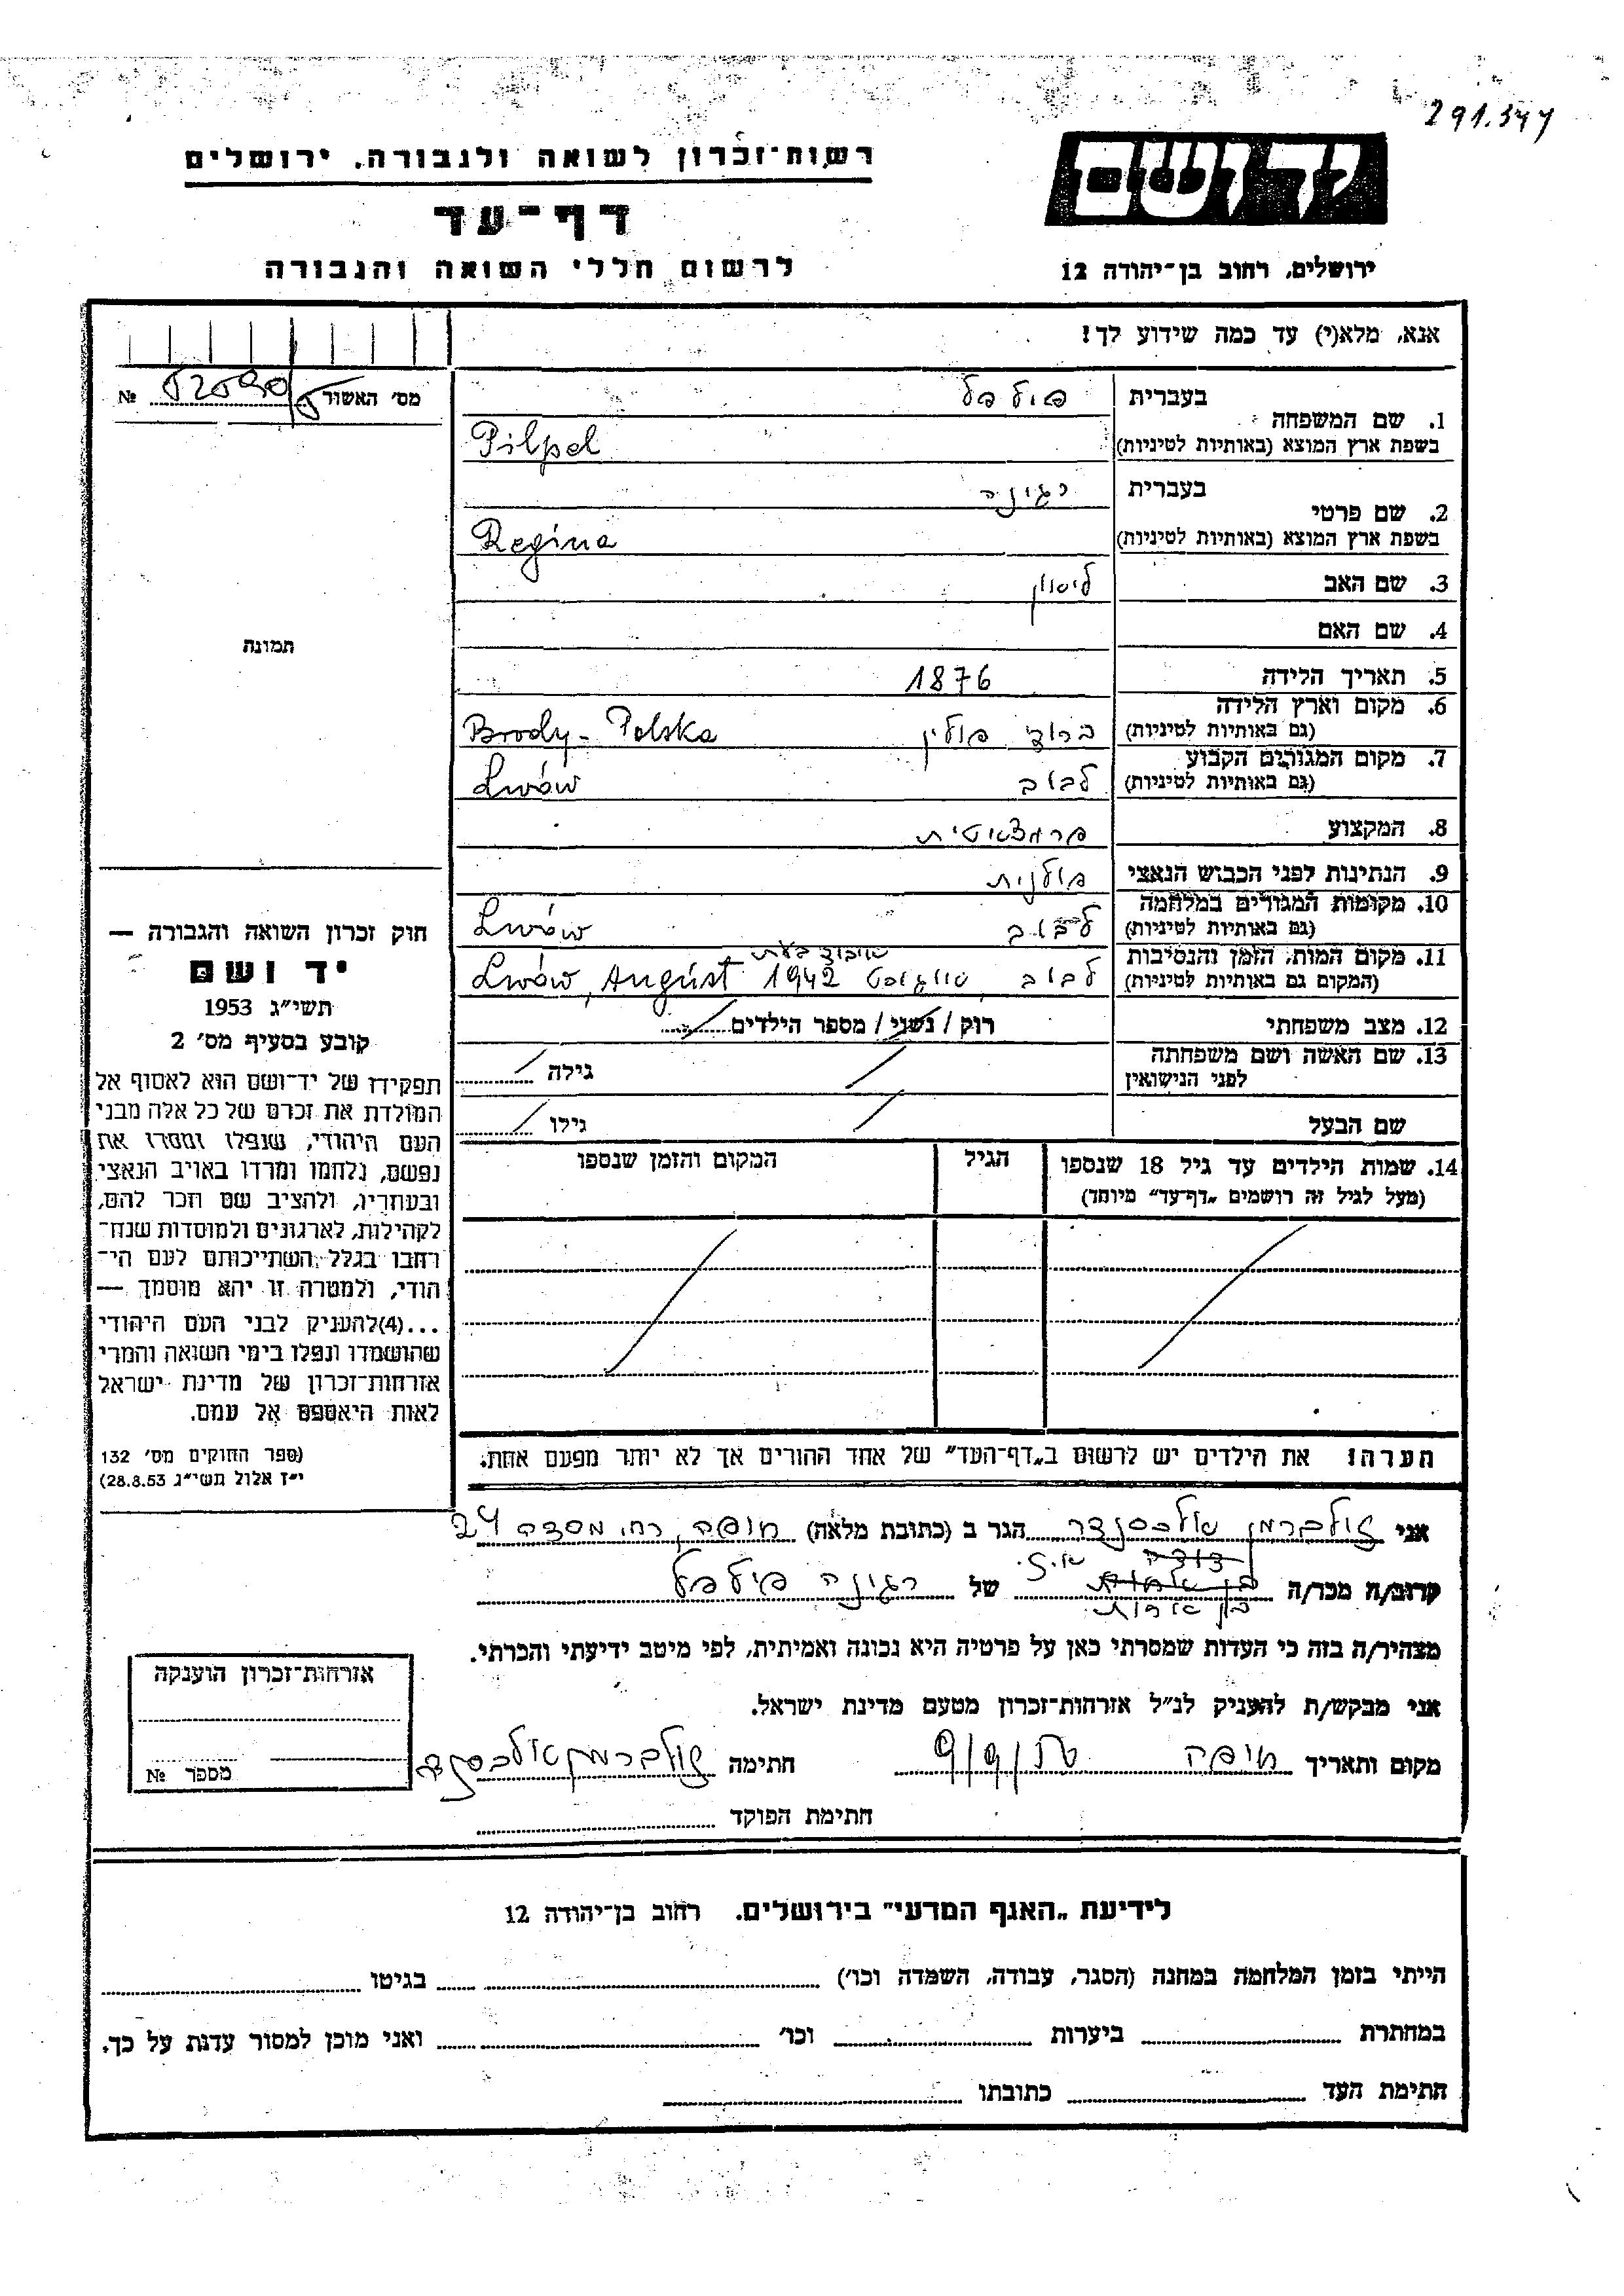 291.347
רשות־זכרון לשואה ולגבורה. ירושלים
דף־עד
לרשום חללי השואה והגבורה
יד ושם
ירושלים, רחוב בן־יהודה 12
אנא, מלא(י) עד כמה שידוע לך!
מס׳ האשור № 52590/5
1. שם המשפחה
בעברית פילפל
בשפת ארץ המוצא (באותיות לטיניות) Pilpel
2. שם פרטי
בעברית רגינה
בשפת ארץ המוצא (באותיות לטיניות) Regina
3. שם האב
4. שם האם
5. תאריך הלידה 1876
6. מקום וארץ הלידה
(גם באותיות לטיניות) ברודי פולין Brody - Polska
7. מקום המגורים הקבוע
(גם באותיות לטיניות) לבוב Lwów
8. המקצוע פרמצאוטית
9. הנתינות לפני הכבוש הנאצי פולנית
10. מקומות המגורים במלחמה
(גם באותיות לטיניות) לבוב Lwów
11. מקום המות, הזמן והנסיבות
(המקום גם באותיות לטיניות) לבוב, אוגוסט 1942 Lwów, August
12. מצב משפחתי רוק / נשוי / מספר הילדים
13. שם האשה ושם משפחתה
לפני הנישואין גילה
שם הבעל גילו
14. שמות הילדים עד גיל 18 שנספו
(מעל לגיל זה רושמים „דף־עד״ מיוחד)
הגיל
המקום והזמן שנספו
הערה! את הילדים יש לרשום ב„דף־העד״ של אחד ההורים אך לא יותר מפעם אחת.
תמונה
חוק זכרון השואה והגבורה —
יד ושם
תשי״ג 1953
קובע בסעיף מס׳ 2
תפקידו של יד־ושם הוא לאסוף אל
המולדת את זכרם של כל אלה מבני
העם היהודי, שנפלו ומסרו את
נפשם, נלחמו ומרדו באויב הנאצי
ובעוזריו, ולהציב שם וזכר להם,
לקהילות, לארגונים ולמוסדות שנח־
רחבו בגלל השתייכותם לעם הי־
הודי, ולמטרה זו יהא מוסמך —
...(4)להעניק לבני העם היהודי
שהושמדו ונפלו בימי השואה והמרי
אזרחות־זכרון של מדינת ישראל
לאות היאספם אל עמם.
(ספר החוקים מס׳ 132
י״ז אלול תשי״ג 28.8.53)
אני זילברמן אלכסנדר הגר ב (כתובת מלאה) חיפה, רח׳ מסדה 24
קרוב/ה מכר/ה בן אחות של רגינה פילפל
מצהיר/ה בזה כי העדות שמסרתי כאן על פרטיה היא נכונה ואמיתית, לפי מיטב ידיעתי והכרתי.
אני מבקש/ת להעניק לנ״ל אזרחות־זכרון מטעם מדינת ישראל.
מקום ותאריך חיפה חתימה זילברמן אלכסנדר
חתימת הפוקד
אזרחות־זכרון הוענקה
מספר №
לידיעת „האגף המדעי״ בירושלים. רחוב בן־יהודה 12
הייתי בזמן המלחמה במחנה (הסגר, עבודה, השמדה וכו׳) בגיטו
במחתרת ביערות וכו׳ ואני מוכן למסור עדות על כך.
חתימת העד כתובתו